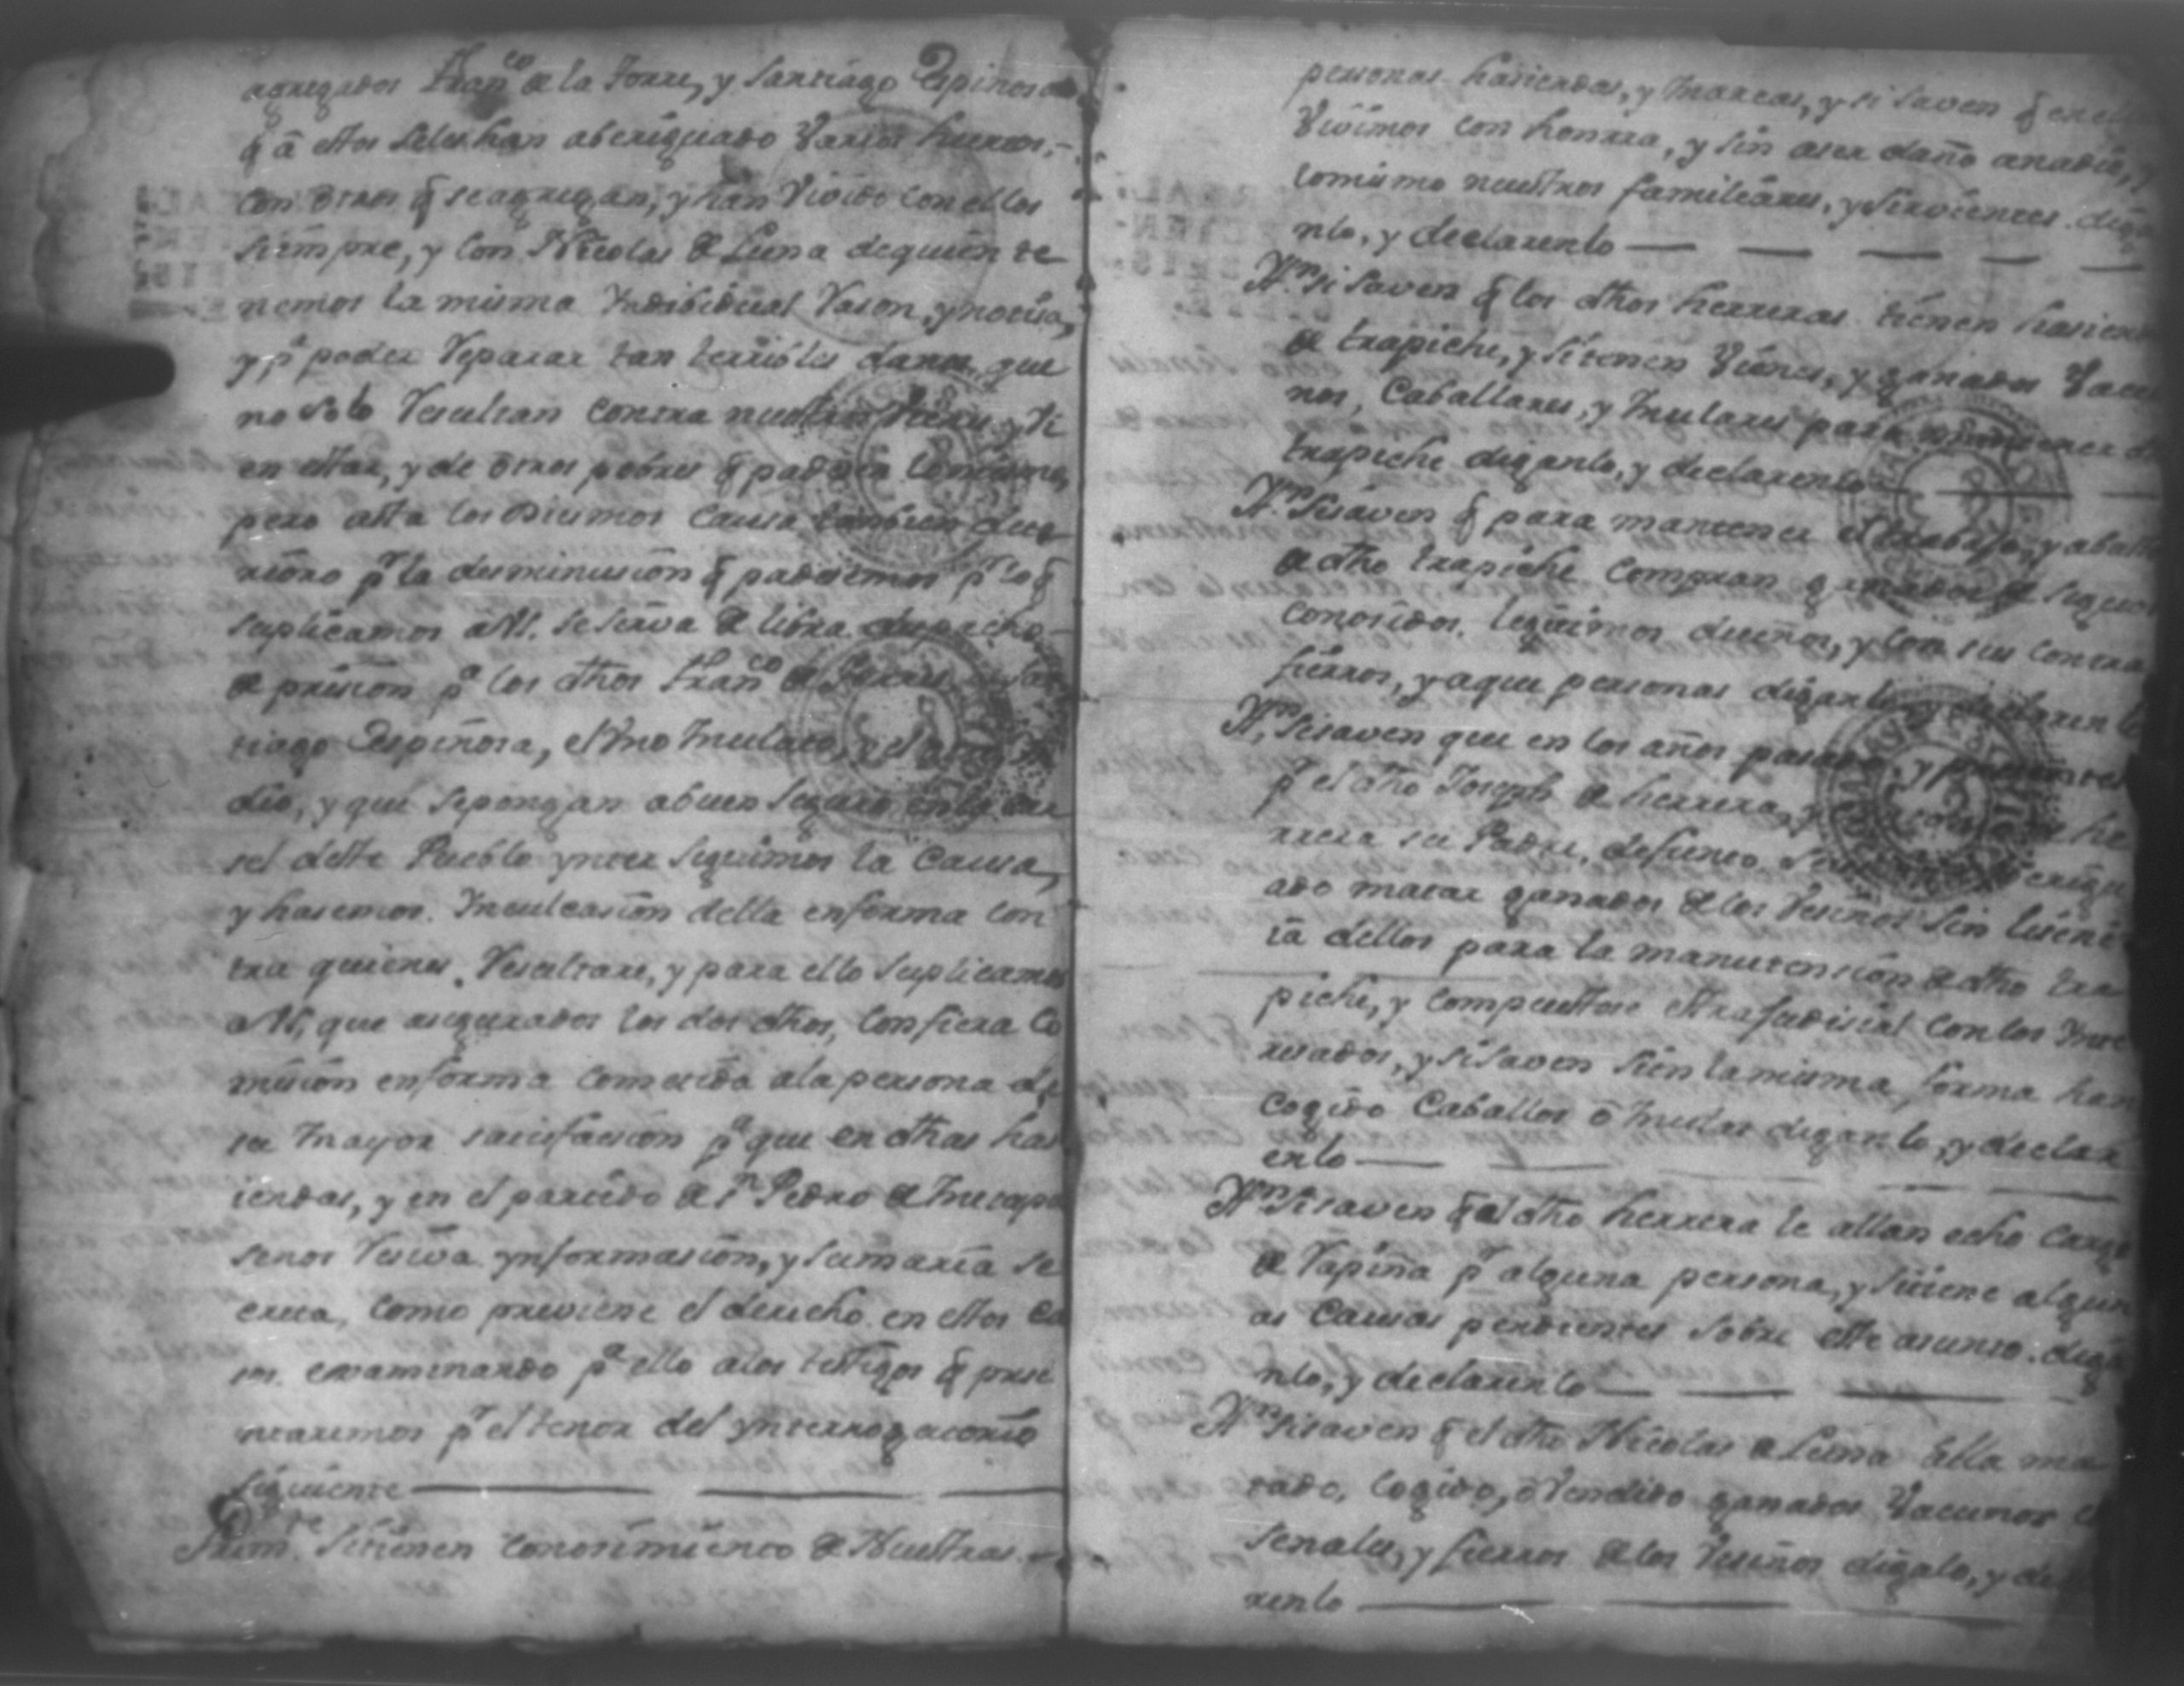 agregados Fran.co de la Torre, y Santiago Espinosa
q̃ â estos seles han aberiguado Varios hurtos,
con otros q̃ se agregan, y han Vivido con ellos
siempre, y con Nicolas de Luna de quien te
nemos la misma Yndibidual Rason, y notisia,
y p.a poder Reparar tan terribles danos que
no solo Resultan contra nuestros Vienes y Vi
en estar, y de otros pobres q̃ padesen lo mismo,
pero asta los Diesmos causa tambien dete
rioro p.r la desminusion q̃ padesemos p.r lo q̃
suplicamos â Vd. se serva de librar despacho
de prision p.a los dhos Fran.co de Torres y San
tiago Espinosa, el Uno mulato, y el otro Yn
dio, y que se pongan abuen seguro en la car
sel deste Pueblo ynter seguimos la causa,
y hasemos Ynculcasion della enforma con
tra quienes Resultare, y para ello suplicamos
a Vd, que asegurados los dos dhos, confiera Co
mision enforma cometida ala persona de
su mayor satisfasion p.a que en dhas has
iendas, y en el partido de S.n Pedro de Metapa
senos Resiva ynformasion, y sumaria se
creta, como previene el derecho en estos ca
sos. examinando p.a ello alos testigos q̃ prese
ntaremos p.r el tenor del ynterrogatorio
siguiente
Prim.te Si tienen conosimiento de Nuestras
personas hasiendas, y marcas, y si saven q̃ en ellas
Vivimos con honrra, y sin aser daño anadie, y
lo mismo nuestros familiares, y sirvientes. diga
nlo, y declarenlo
Yt.n si saven q̃ los dhos herreras tienen hasienda
de trapiche, y si tienen Vienes, y ganados Vacu
nos, Caballares, y mulares para mantener dho
trapiche diganlo, y declarenlo
Yt.n Si saven q̃ para mantener el trabajo, y abasto
de dho trapiche compran ganados de seguros
conosidos. legitimos dueños, y con sus contra
fierros, y a que personas diganlo, y declarenlo
Yt.n, si saven que en los años pasados, y presentes
p.r el dho Joseph de herrera, y de he
rrera su Padre, defunto Se aberigu
ado matar ganados de los Vesinos sin lisens
ia dellos para la manutension de dho tra
piche, y compuestose estrajudisial con los Ynte
resados, y si saven si en la misma forma han
cogido Caballos ô mulas diganlo, y declar
enlo
Yt.n Si saven q̃ al dho herrera le allan echo Cargo
de Rapiña p.r alguna persona, y si tiene algun
as Causas pendientes sobre este asunto. diga
nlo, y declarenlo
Yt.n Si saven q̃ el dho Nicolas de Luna alla ma
tado, cogido, ô Vendido ganados Vacunos de
señales, y fierros de los Vesinos digalo, y decla
renlo